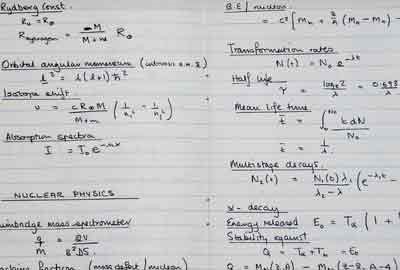 Rydberg Const.
R₀ = R∞
R hydrogen = M / M+m R∞
Orbital angular momentum
l² = l(l+1)ħ²
Isotope shift.
ν = cR∞M / M+m (1/n₁² - 1/n₂²)
Absorption spectra
I = I₀ e
NUCLEAR PHYSICS
mass spectrometer
q/m = 2V / B²DS
fraction (mass defect / nucleon)
B.E/ nucleon
= c² [Mₙ + (Mₙ - Mₙ) -
Transformation rates.
N(t) = N₀ e^-λt
Half life
τ = log₂ 2 / λ = 0.693
Mean life time
t̄ = ∫ t dN / N₀
t̄ = 1/λ
Multistage decays.
N₂(t) = N₁(0) λ₁ / λ₂ - λ₁ (e^-λ₁t -
α - decay
Energy released E₀ = Tα (1 +
Stability against
Q = Tα + Tb = E₀